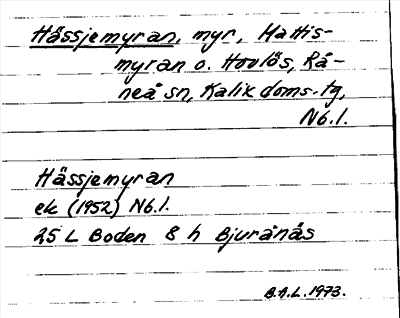 Hässjemyran, myr, Mattis-
myran o. Hovlös, Rå-
neå sn, Kalix doms.tg,
Nb.l.
Hässjemyran
ek (1952) Nb.l.
25 L Boden 8 h Bjurånäs
B.A.L. 1973.